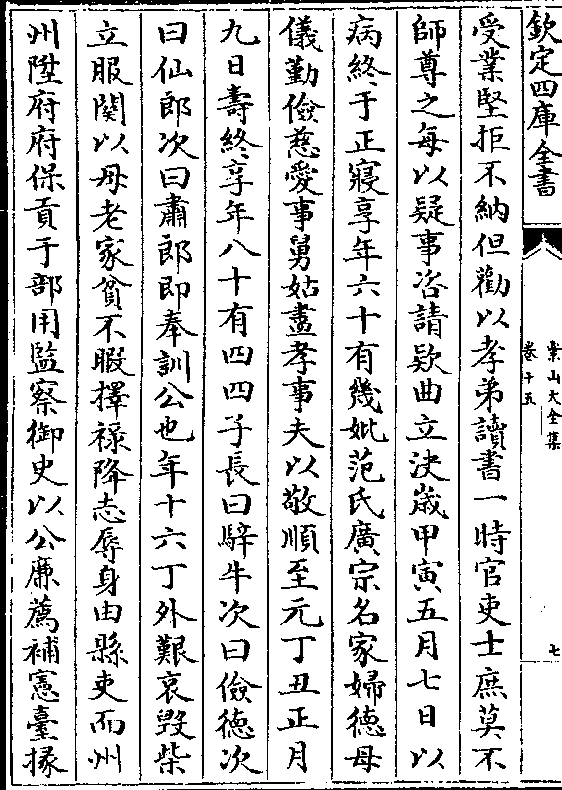 欽定四庫全書
紫山大全集
卷十五
七
受業堅拒不納但勸以孝弟讀書一時官吏士庶莫不
師尊之每以疑事咨請欵曲立決歳甲寅五月七日以
病終于正寢享年六十有幾妣范氏廣宗名家婦德母
儀勤儉慈愛事舅姑盡孝事夫以敬順至元丁丑正月
九日壽終享年八十有四四子長曰騂牛次曰儉德次
曰仙郎次曰肅郎即奉訓公也年十六丁外艱哀毁柴
立服闋以母老家貧不暇擇禄降志辱身由縣吏而州
州陞府府保貢于部用監察御史以公廉薦補憲臺掾